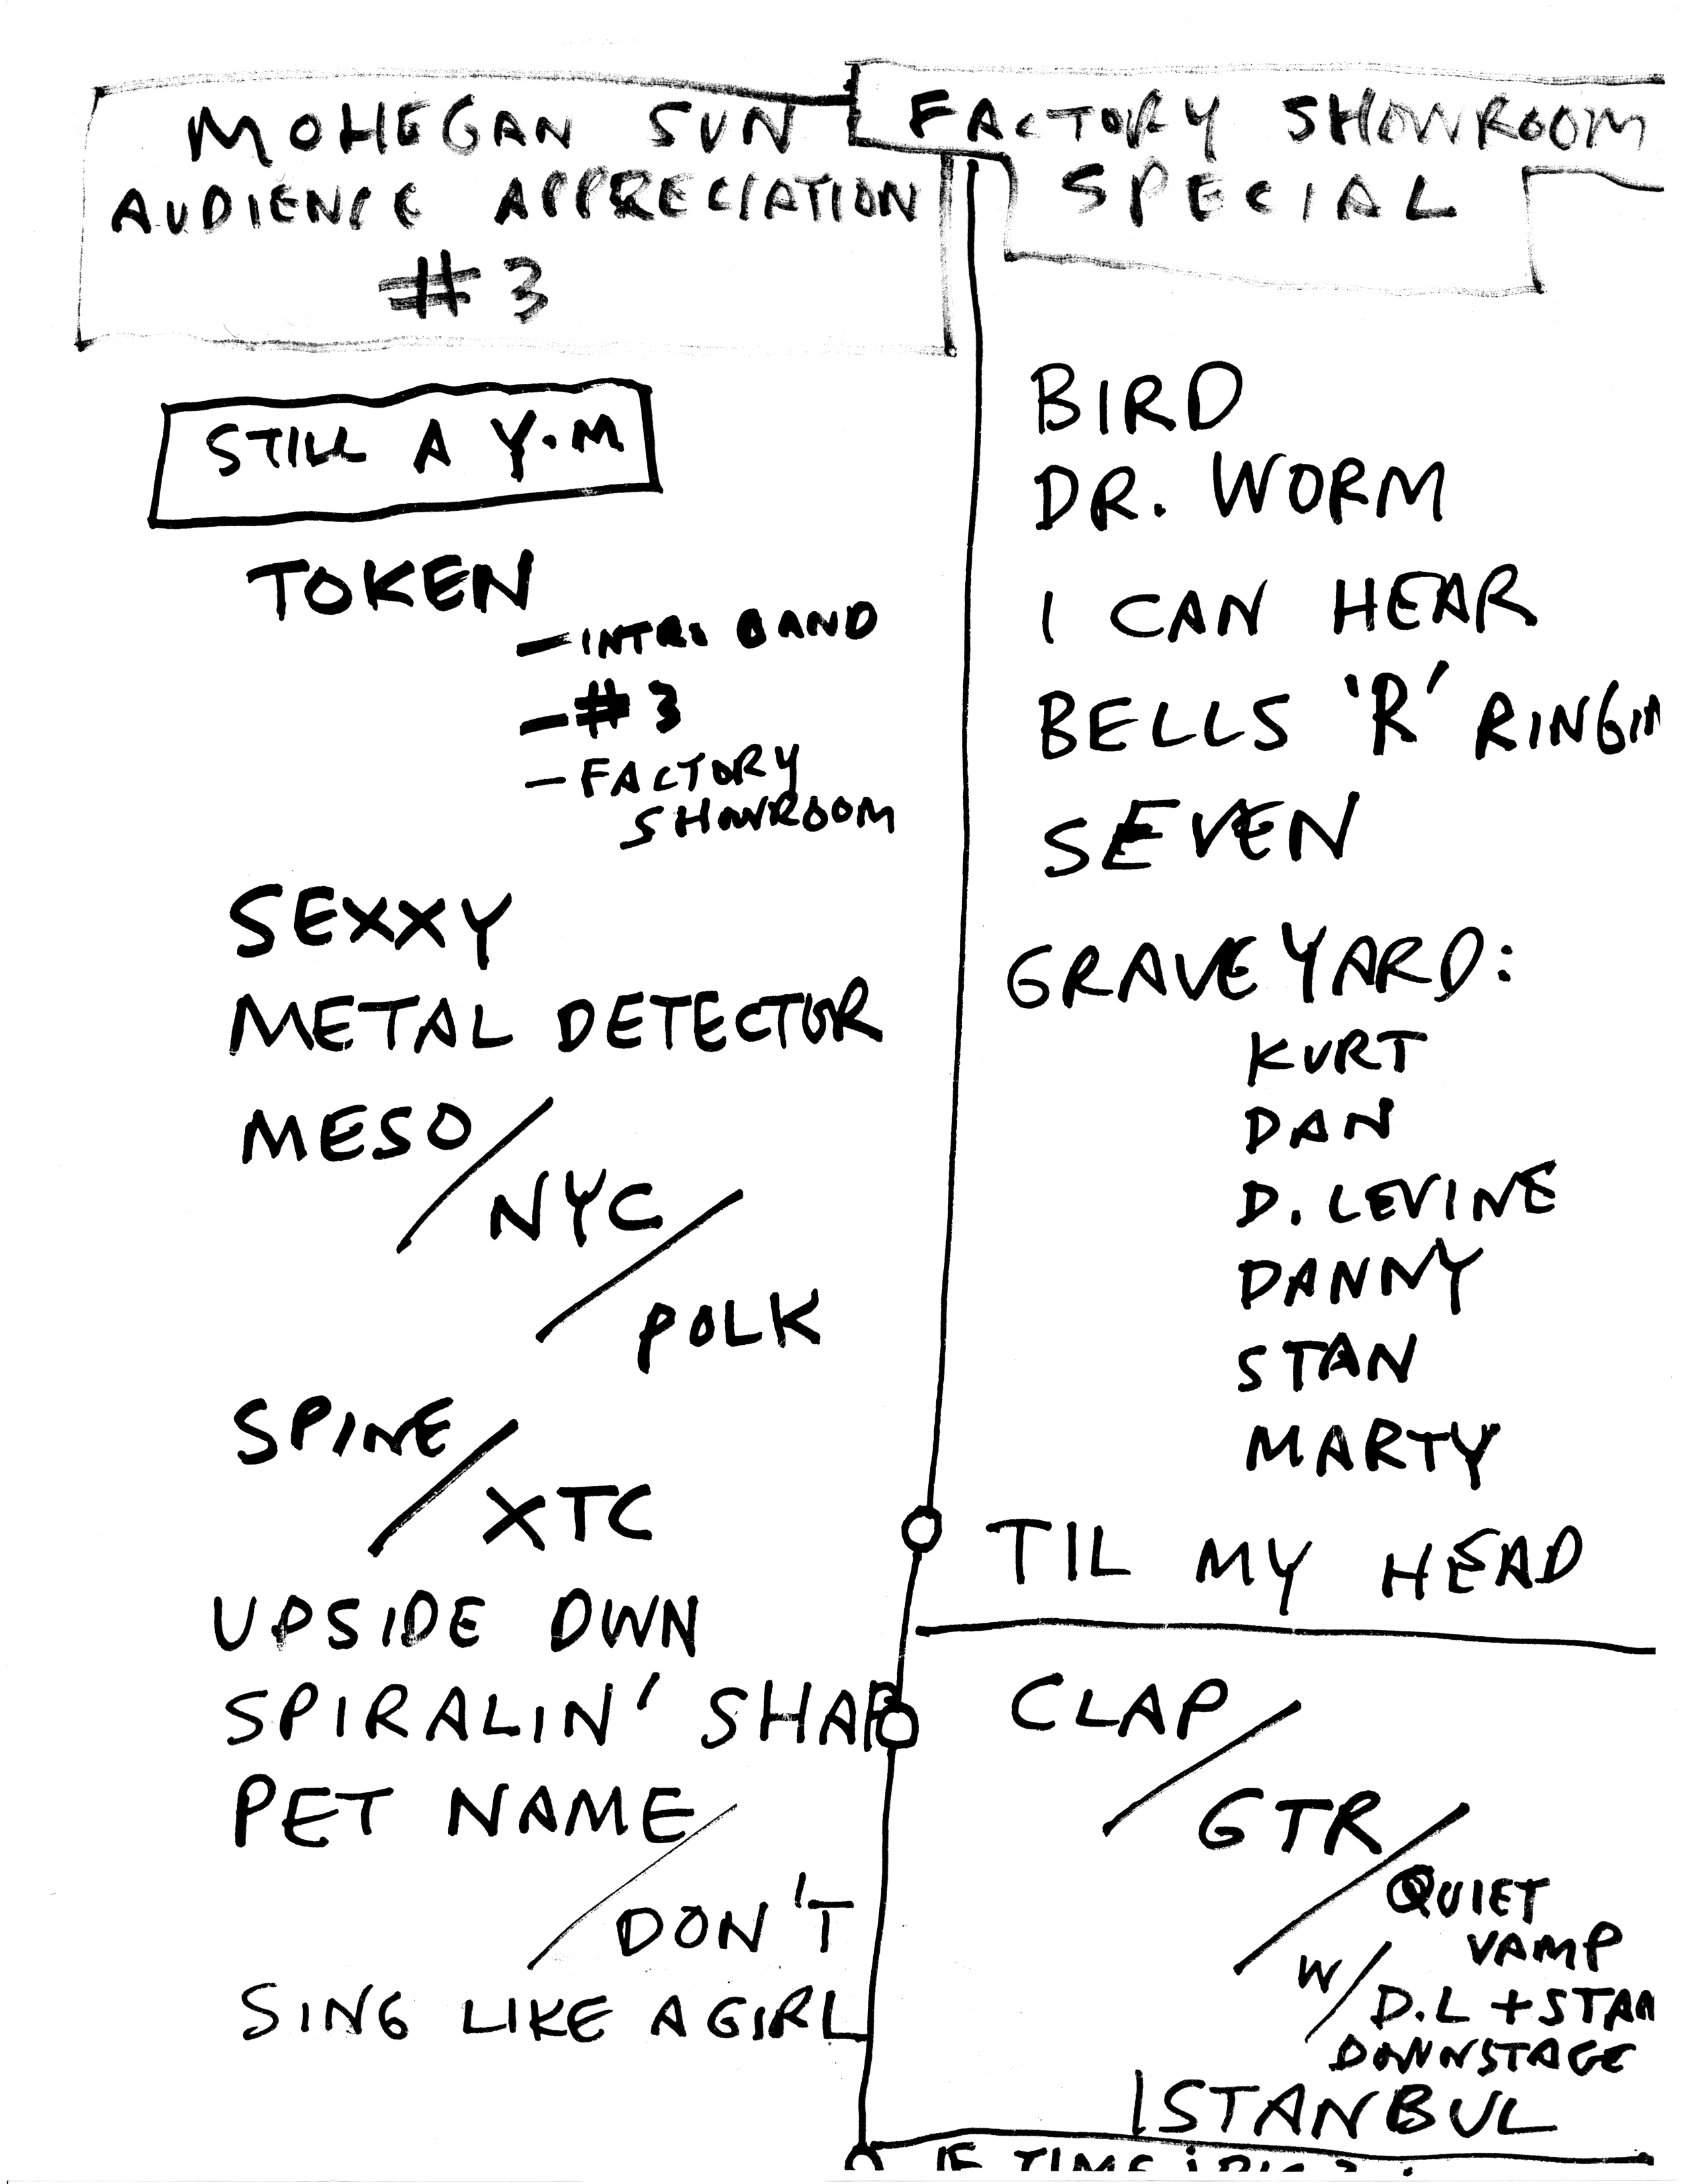 MOHEGAN SUN
AUDIENCE APPRECIATION
#3
STILL A Y.M
TOKEN
- INTRO BAND
- #3
- FACTORY
SHOWROOM
SEXXY
METAL DETECTOR
MESO/
NYC/
POLK
SPINE/
XTC
UPSIDE DWN
SPIRALIN' SHAP
PET NAME/
DON'T
SING LIKE A GIRL
FACTORY SHOWROOM
SPECIAL
BIRD
DR. WORM
I CAN HEAR
BELLS 'R' RINGIN
SEVEN
GRAVEYARD:
KURT
DAN
D. LEVINE
DANNY
STAN
MARTY
TIL MY HEAD
CLAP/
GTR/
QUIET
VAMP
W/ D.L + STAN
DOWNSTAGE
ISTANBUL
IF TIME